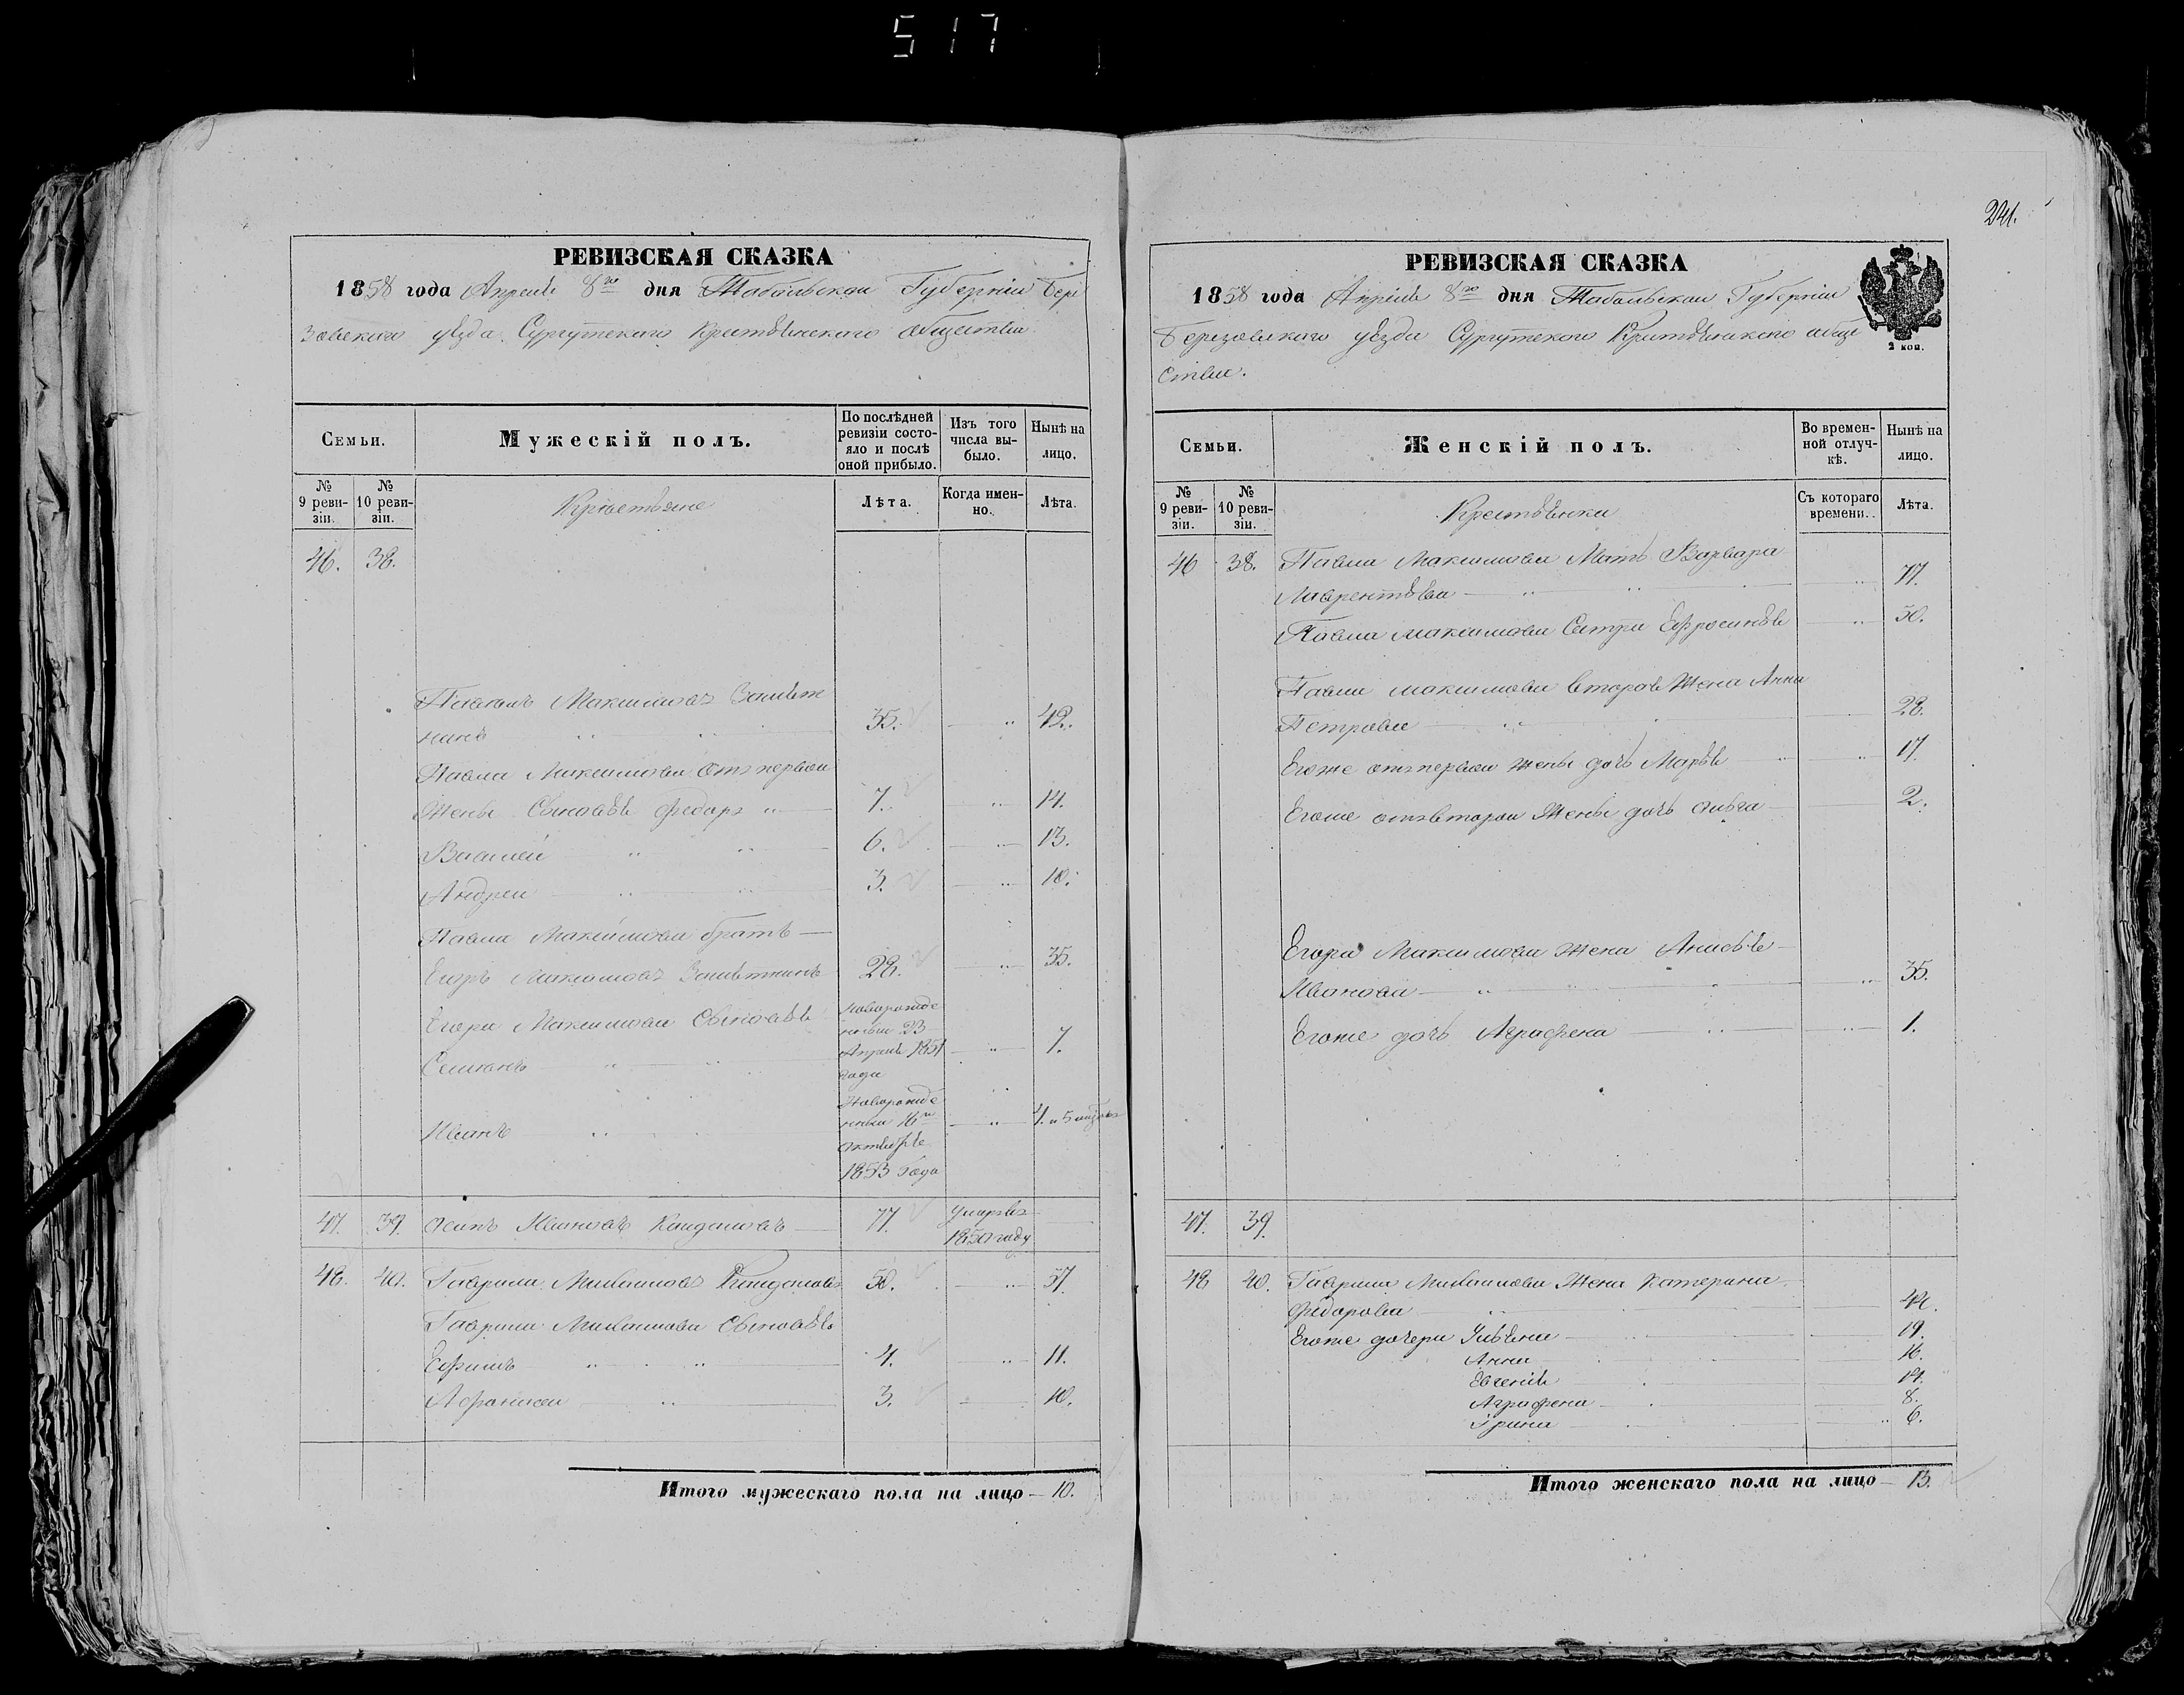 517
241.
РЕВИЗСКАЯ СКАЗКА
1858 года Апреля 8го дня Тобольской Губерніи Бере
зовского уѣзда Сургутского Крестьянского общества.
Семьи.
Мужескій полъ.
По послѣдней ревизіи состояло и послѣ оной прибыло.
Изъ того числа выбыло.
Нынѣ на лицо.
№ 9 ревизіи.
№ 10 ревизіи.
Крестьяне
Лѣта.
Когда именно.
Лѣта.
46. 38.
Павелъ Максимовъ
нинъ 35. 42.
Павла Максимова отъ первой
жены Сыновья Федоръ 7. 14.
Василей 6. 13.
Андрей 3. 10.
Павла Максимова братъ
Егоръ Максимовъ 28. 35.
Егора Максимова Сыновья
Семенъ
новорожде
нный 23
Апреля 1851
года
7.
Иванъ
Новорожде
нный 16го
Октября
1853 года
4. и 5
47. 39. Осипъ Ивановъ Кайдаловъ 77. умеръ въ
1850 году
48. 40. Гаврила Михайловъ Кайдаловъ 50. 57.
Гаврила Михайлова Сыновья
Ефимъ 4. 11.
Афанасей 3. 10.
Итого мужескаго пола на лицо — 10.
РЕВИЗСКАЯ СКАЗКА
1858 года Апреля 8го дня Тобольской Губерніи
Березовского уѣзда Сургутского Крестьянского обще
ства.
2 коп.
Семьи.
Женскій полъ.
Во временной отлучкѣ.
Нынѣ на лицо.
№ 9 ревизіи.
№ 10 ревизіи.
Крестьянки
Съ котораго времени.
Лѣта.
46 38. Павла Максимова Мать Варвара
Лаврентьева 77.
Павла Максимова Сестра Ефросинья 50.
Павла Максимова вторая Жена Анна
Петрова 28.
Егоже отъ первой жены дочь Марья 17.
Егоже отъ второй Жены дочь Ольга 2.
Егора Максимова Жена Анисья
Иванова 35.
Егоже дочь Аграфена 1.
47. 39.
48 40. Гаврила Михайлова Жена Катерина
Федорова
Егоже дочери Ульяна 19.
Анна 16.
Евгенія 14.
Аграфена 8.
Ирина 6.
Итого женскаго пола на лицо — 13.